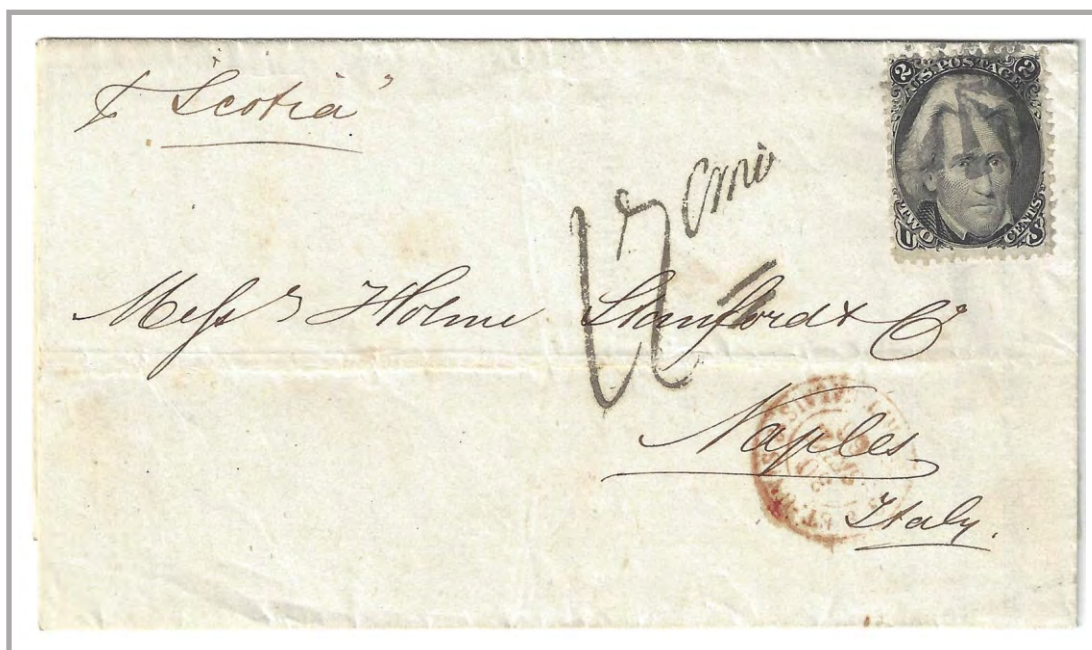 ℘ "Scotia"
2 U.S. POSTAGE 2
TWO CENTS
U S
cmi
Mess^rs Holme Stanford & Co
Naples
Italy.